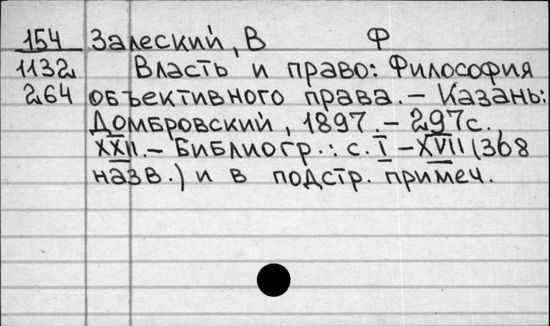 154 Залеский, В Ф
1132 Власть и право: Философия
264 объективного права. - Казань:
Домбровский, 1897. - 297с.,
XXII. - Библиогр.: с. I - XVII (368
назв.) и в подстр. примеч.